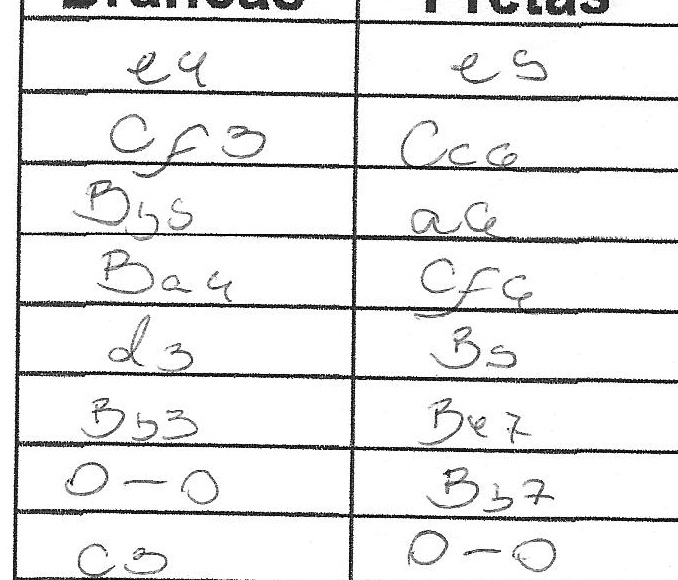 Brancas Pretas
e4 e5
Cf3 Cc6
Bb5 a6
Ba4 Cf6
d3 B5
Bb3 Be7
0-0 Bb7
C3 0-0